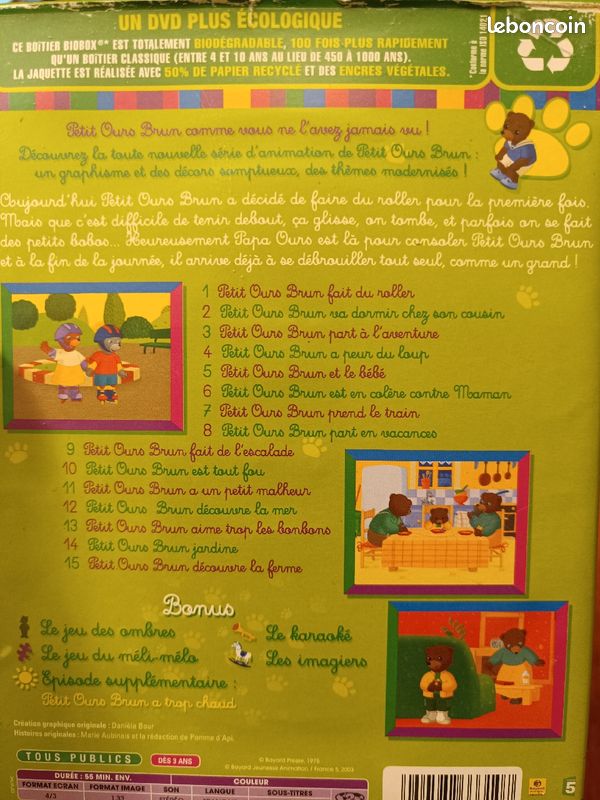 UN DVD PLUS ÉCOLOGIQUE
leboncoin
CE BOÎTIER BIOBOX®* EST TOTALEMENT BIODÉGRADABLE, 100 FOIS PLUS RAPIDEMENT
QU'UN BOÎTIER CLASSIQUE (ENTRE 4 ET 10 ANS AU LIEU DE 450 À 1000 ANS).
LA JAQUETTE EST RÉALISÉE AVEC 50% DE PAPIER RECYCLÉ ET DES ENCRES VÉGÉTALES.
*Conforme à
la norme ISO 14021
Petit Ours Brun comme vous ne l'avez jamais vu !
Découvrez la toute nouvelle série d'animation de Petit Ours Brun :
un graphisme et des décors somptueux, des thèmes modernisés !
Aujourd'hui Petit Ours Brun a décidé de faire du roller pour la première fois.
Mais que c'est difficile de tenir debout, ça glisse, on tombe, et parfois on se fait
des petits bobos... Heureusement Papa Ours est là pour consoler Petit Ours Brun
et à la fin de la journée, il arrive déjà à se débrouiller tout seul, comme un grand !
1 Petit Ours Brun fait du roller
2 Petit Ours Brun va dormir chez son cousin
3 Petit Ours Brun part à l'aventure
4 Petit Ours Brun a peur du loup
5 Petit Ours Brun et le bébé
6 Petit Ours Brun est en colère contre Maman
7 Petit Ours Brun prend le train
8 Petit Ours Brun part en vacances
9 Petit Ours Brun fait de l'escalade
10 Petit Ours Brun est tout fou
11 Petit Ours Brun a un petit malheur
12 Petit Ours Brun découvre la mer
13 Petit Ours Brun aime trop les bonbons
14 Petit Ours Brun jardine
15 Petit Ours Brun découvre la ferme
Bonus
Le jeu des ombres
Le karaoké
Le jeu du méli-mélo
Les imagiers
Episode supplémentaire :
Petit Ours Brun a trop chaud
Création graphique originale : Danièle Bour
Histoires originales : Marie Aubinais et la rédaction de Pomme d'Api.
© Bayard Presse, 1975
© Bayard Jeunesse Animation / France 5, 2003
TOUS PUBLICS
DÈS 3 ANS
5
DURÉE : 55 MIN. ENV.
COULEUR
FORMAT ECRAN
FORMAT IMAGE
SON
LANGUE
SOUS-TITRES
4/3
1.33
STÉRÉO